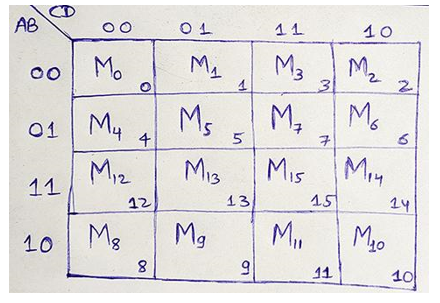 AB CD
00 01 11 10
00 M0 0 M1 1 M3 3 M2 2
01 M4 4 M5 5 M7 7 M6 6
11 M12 12 M13 13 M15 15 M14 14
10 M8 8 M9 9 M11 11 M10 10